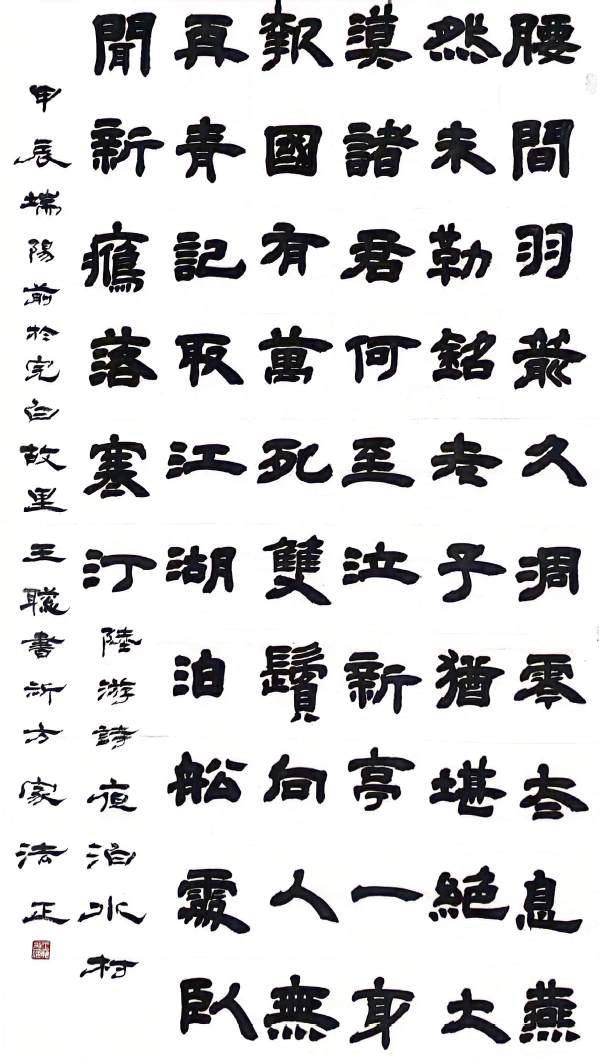 腰間羽箭久凋零夳息燕
然未勒銘老子猶堪絕大
漠諸君何至泣新亭一身
報國有萬死雙鬢向人無
再青記取江湖泊舩處臥
聞新鴈落寒汀
陸游詩夜泊水村
甲辰端陽前於完白故里王聰書祈方家法正